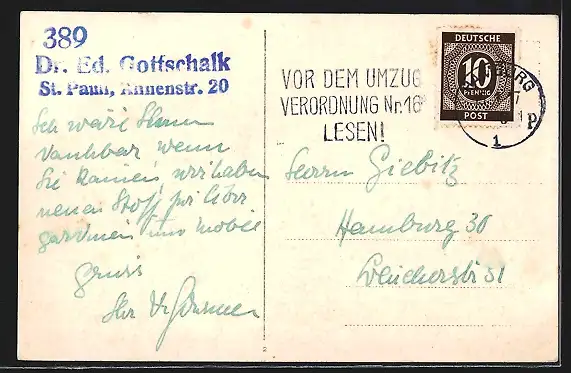 389
Dr. Ed. Gottschalk
St. Pauli, Annenstr. 20
Ich wäre Ihnen
dankbar wenn
Sie kämen, wir haben
neuen Stoff für Über
gardinen und Möbel
Gruss
Ihr
VOR DEM UMZUG
VERORDNUNG Nr. 16
LESEN!
DEUTSCHE
10
PFENNIG
POST
1
Herrn Giebitz
Hamburg 30